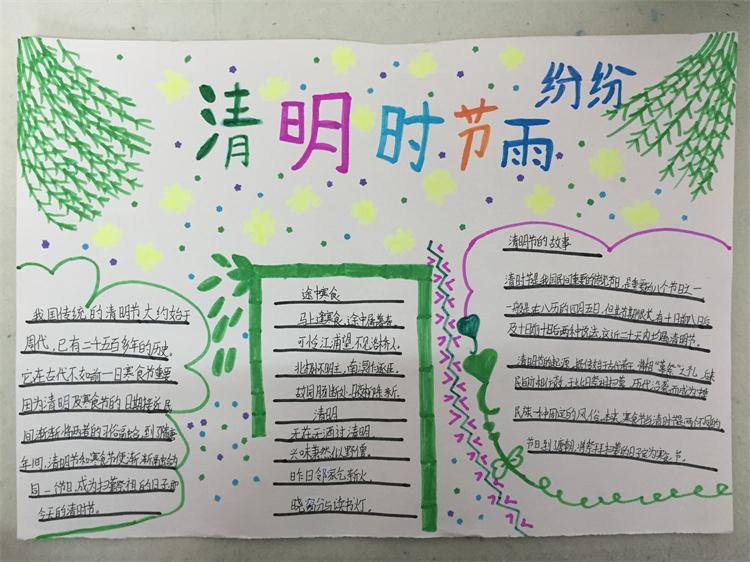 清明时节雨
纷纷
我国传统的清明节大约始于
周代,已有二十五百多年的历史。
它在古代不如前一日寒食节重要
因为清明及寒食节的日期接近民
间渐渐将两者的习俗融合,到了隋唐
年间,清明节和寒食节便渐渐融合为
同一个节日,成为扫墓祭祖的日子,即
今天的清明节。
途中寒食
马上逢寒食,途中属暮春
可怜江浦望,不见洛桥人。
北极怀明主,南溟作逐臣
故园肠断处,日夜柳条新。
清明
无花无酒过清明
兴味萧然似野僧
昨日邻家乞新火
晓窗分与读书灯。
清明节的故事
清明节是我国民间重要的传统节日,是重要的八个节日之一
一般是在公历的四月五日,但其节期很长,有十日前八日后
及十日前十日后两种说法,这近二十天内均属清明节。
清明节的起源,据传始于古代帝王将相"墓祭"之礼,后来
民间亦相仿效,于此日祭祖扫墓,历代沿袭而成为中华
民族一种固定的风俗。本来,寒食节与清明节是两个不同的
节日,到了唐朝,将祭拜扫墓的日子定为寒食节。